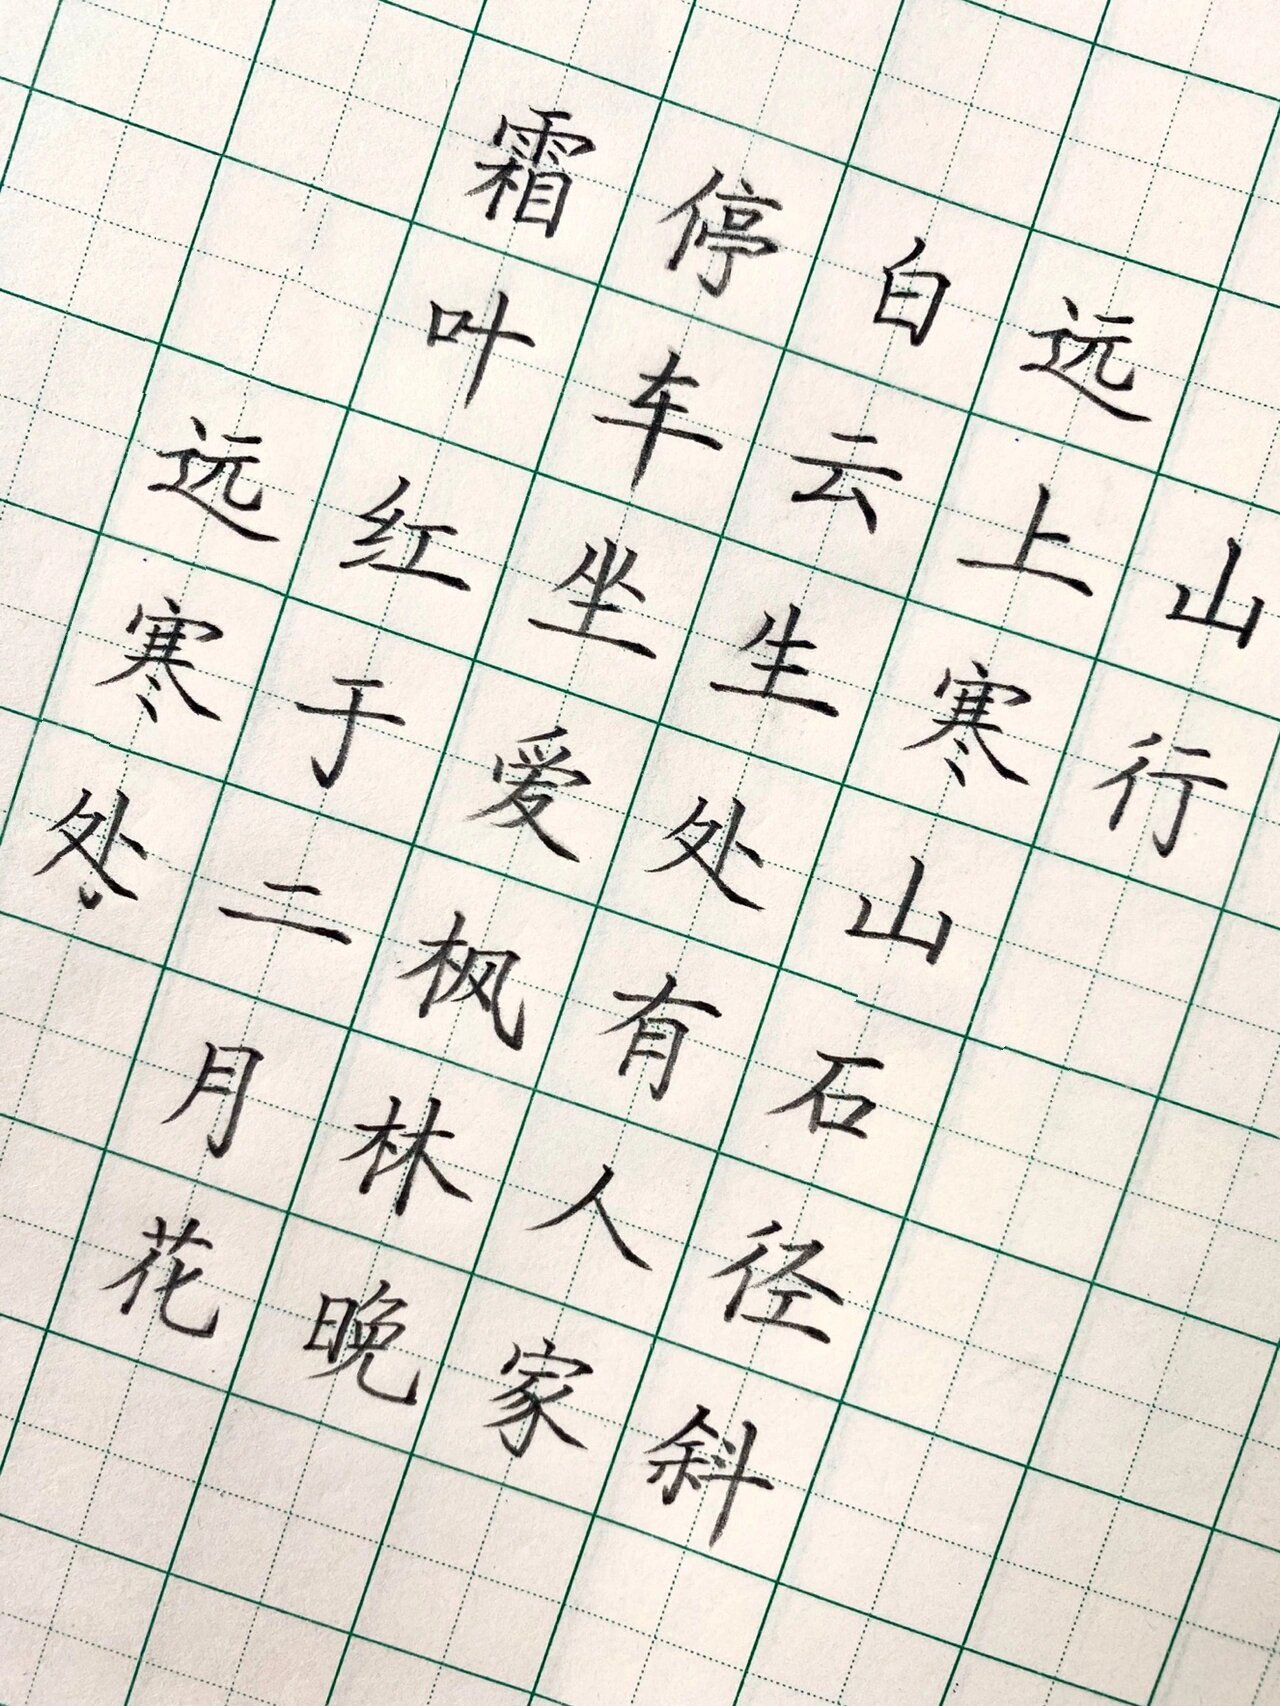 山行
远上寒山石径斜
白云生处有人家
停车坐爱枫林晚
霜叶红于二月花
远寒